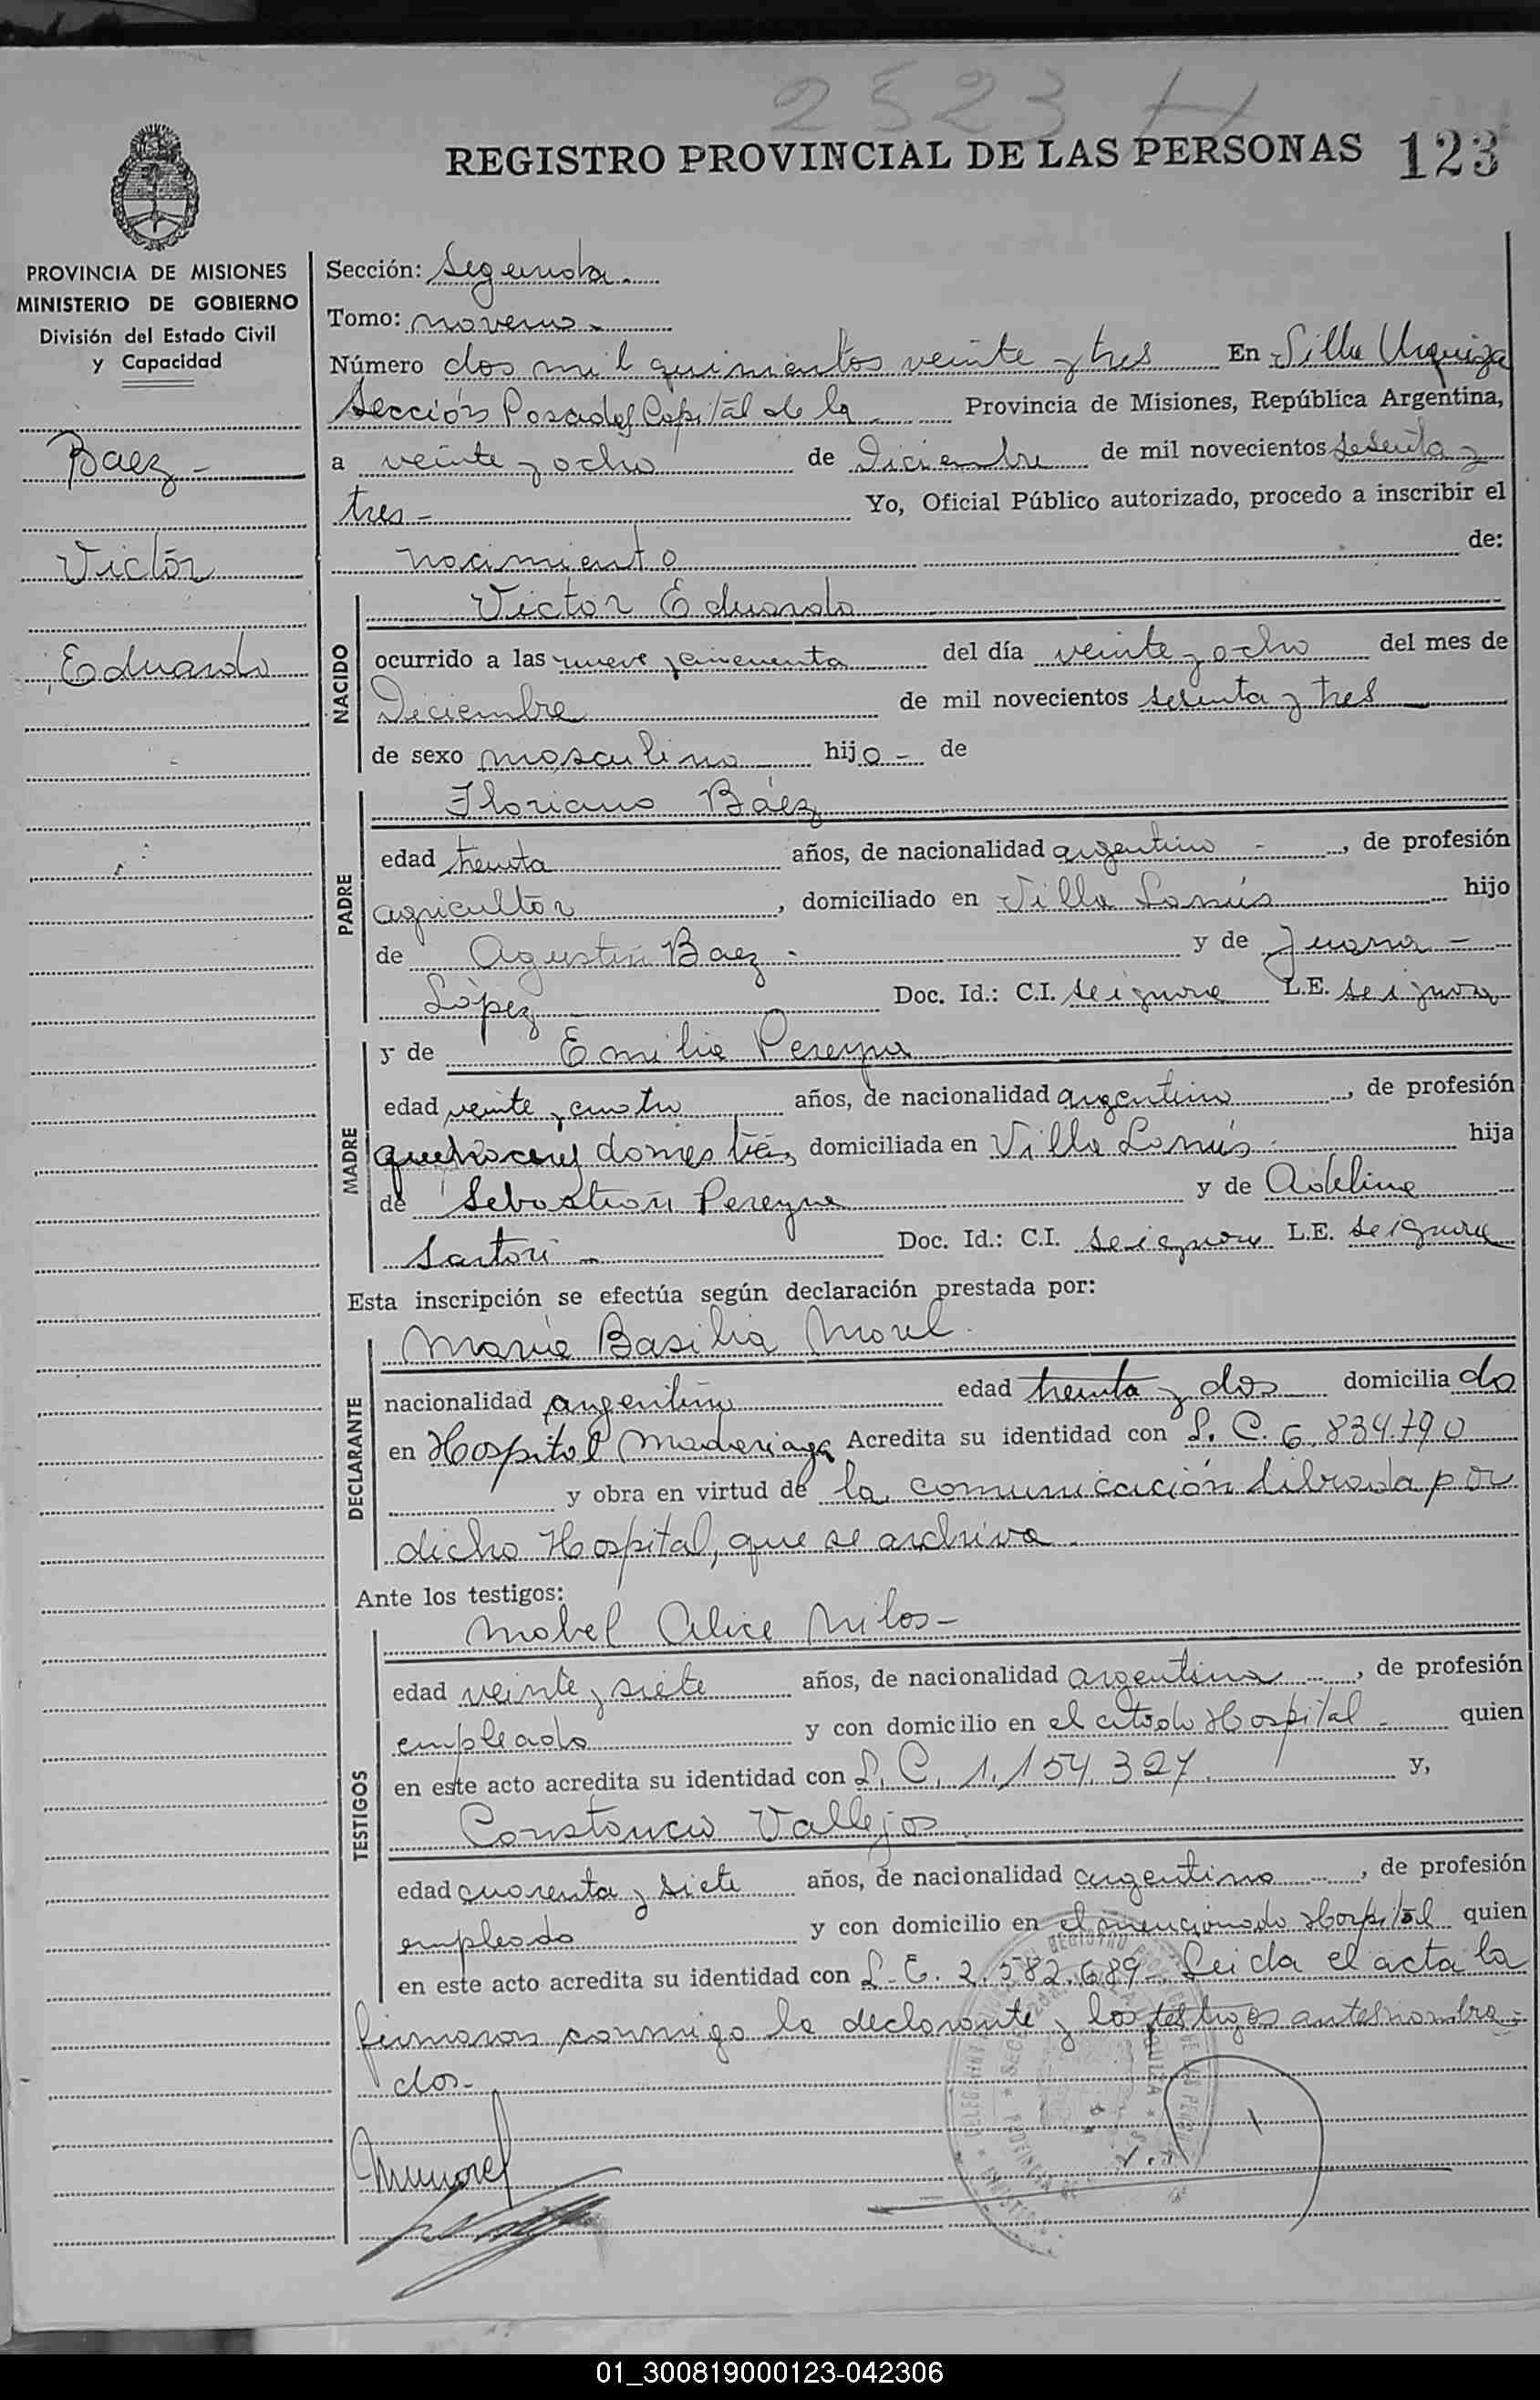 2523 H
REGISTRO PROVINCIAL DE LAS PERSONAS 123
PROVINCIA DE MISIONES
MINISTERIO DE GOBIERNO
División del Estado Civil
y Capacidad
Baez -
Victor
Eduardo
Sección: Segunda.
Tomo: noveno.
Número dos mil quinientos veinte y tres En Villa Urquiza
Sección Posadas Capital de la Provincia de Misiones, República Argentina,
a veinte y ocho de Diciembre de mil novecientos sesenta y
tres - Yo, Oficial Público autorizado, procedo a inscribir el
nacimiento de:
NACIDO
Victor Eduardo
ocurrido a las nueve y cincuenta del día veinte y ocho del mes de
Diciembre de mil novecientos sesenta y tres
de sexo masculino hijo - de
PADRE
Floriano Báez
edad treinta años, de nacionalidad argentino - , de profesión
agricultor , domiciliado en Villa Lanús hijo
de Agustin Baez - y de Juana -
López Doc. Id.: C.I. se ignora L.E. se ignora
MADRE
y de Emilia Pereyra
edad veinte y cuatro años, de nacionalidad argentina , de profesión
quehaceres domésticos, domiciliada en Villa Lanús hija
de Sebastián Pereyra y de Adelina
Sartori - Doc. Id.: C.I. se ignora L.E. se ignora
Esta inscripción se efectúa según declaración prestada por:
DECLARANTE
María Basilia Morel.
nacionalidad argentina edad treinta y dos domicilia do
en Hospital Madariaga Acredita su identidad con L. C. 6.834.790
y obra en virtud de la comunicación librada por
dicho Hospital, que se archiva.
Ante los testigos:
TESTIGOS
Mabel Alice Milos -
edad veinte y siete años, de nacionalidad argentina , de profesión
empleada y con domicilio en el citado Hospital - quien
en este acto acredita su identidad con L. C. 1.154.327 y,
Constancio Vallejos
edad cuarenta y siete años, de nacionalidad argentino , de profesión
empleado y con domicilio en el mencionado Hospital quien
en este acto acredita su identidad con L. E. 2.582.689 - Leida el acta la
firmaron conmigo la declarante y los testigos antesnombra-
dos -
MMorel
01_300819000123-042306